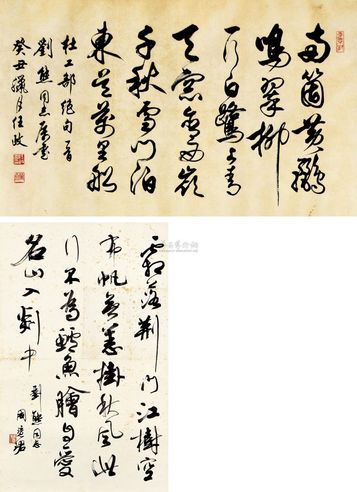 两箇黄鸝
鳴翠柳
一行白鷺上青
天窗含西嶺
千秋雪门泊
東吴萬里船
杜工部绝句一首
劉熊同志属書
癸丑臘月任政
霜落荆门江樹空
布帆無恙掛秋風此
行不為鱸魚膾自愛
名山入剡中
劉熊同志
周慧珺